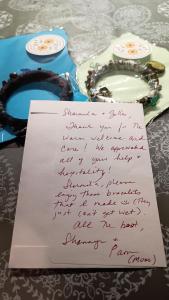 Thank you for the
warm welcome and
care! We appreciated
all of your help &
hospitality!
please
enjoy these bracelets
that I made (They
just can't get wet).
All the best,
Pam
(Mom)